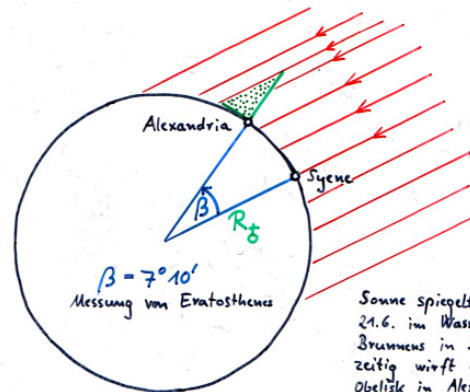 Alexandria
Syene
β
R♁
β = 7°10'
Messung von Eratosthenes
Sonne spiegelt
21.6. im Wass
Brunnens in
zeitig wirft
Obelisk in Alex